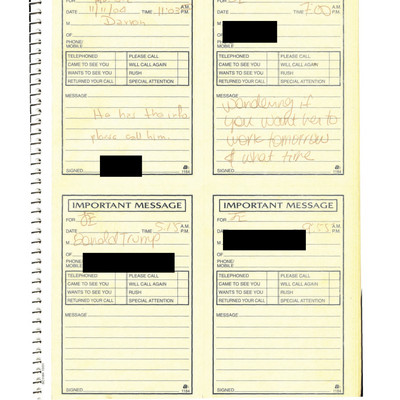 FOR
DATE 11/11/00 TIME 11:03 A.M. P.M.
M
OF
PHONE/
MOBILE
TELEPHONED PLEASE CALL
CAME TO SEE YOU WILL CALL AGAIN
WANTS TO SEE YOU RUSH
RETURNED YOUR CALL SPECIAL ATTENTION
MESSAGE
He has the info.
please call him.
SIGNED 1184
DATE TIME 7:00 A.M. P.M.
M
OF
PHONE/
MOBILE
TELEPHONED PLEASE CALL
CAME TO SEE YOU WILL CALL AGAIN
WANTS TO SEE YOU RUSH
RETURNED YOUR CALL SPECIAL ATTENTION
MESSAGE
Wondering if
you want her to
work tomorrow
& what time
SIGNED 1184
IMPORTANT MESSAGE
FOR JE
DATE TIME 5:15 A.M. P.M.
M Donald Trump
OF
PHONE/
MOBILE
TELEPHONED PLEASE CALL
CAME TO SEE YOU WILL CALL AGAIN
WANTS TO SEE YOU RUSH
RETURNED YOUR CALL SPECIAL ATTENTION
MESSAGE
SIGNED 1184
IMPORTANT MESSAGE
FOR JE
DATE TIME A.M. P.M.
M
OF
PHONE/
MOBILE
TELEPHONED PLEASE CALL
CAME TO SEE YOU WILL CALL AGAIN
WANTS TO SEE YOU RUSH
RETURNED YOUR CALL SPECIAL ATTENTION
MESSAGE
SIGNED 1184